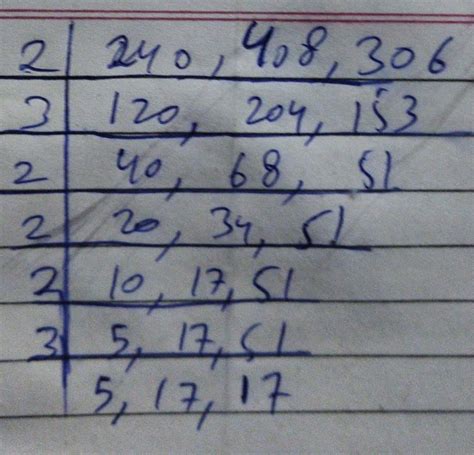 2 | 240, 408, 306
3 | 120, 204, 153
2 | 40, 68, 51
2 | 20, 34, 51
2 | 10, 17, 51
3 | 5, 17, 51
5, 17, 17